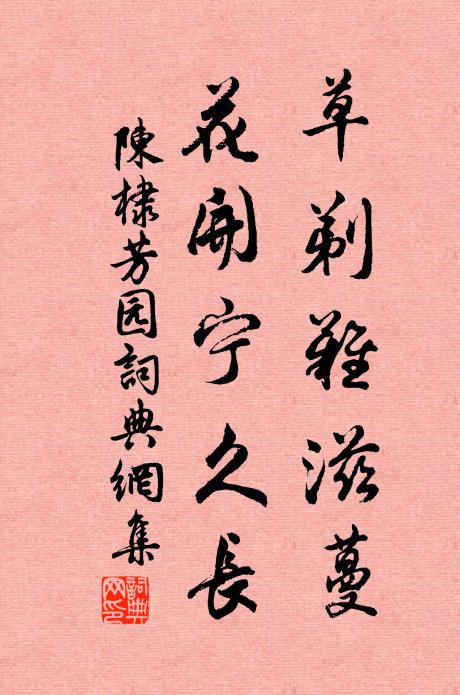 草剃難滋蔓
花開宁久長
陳棣芳园詞典網集
詞典网印